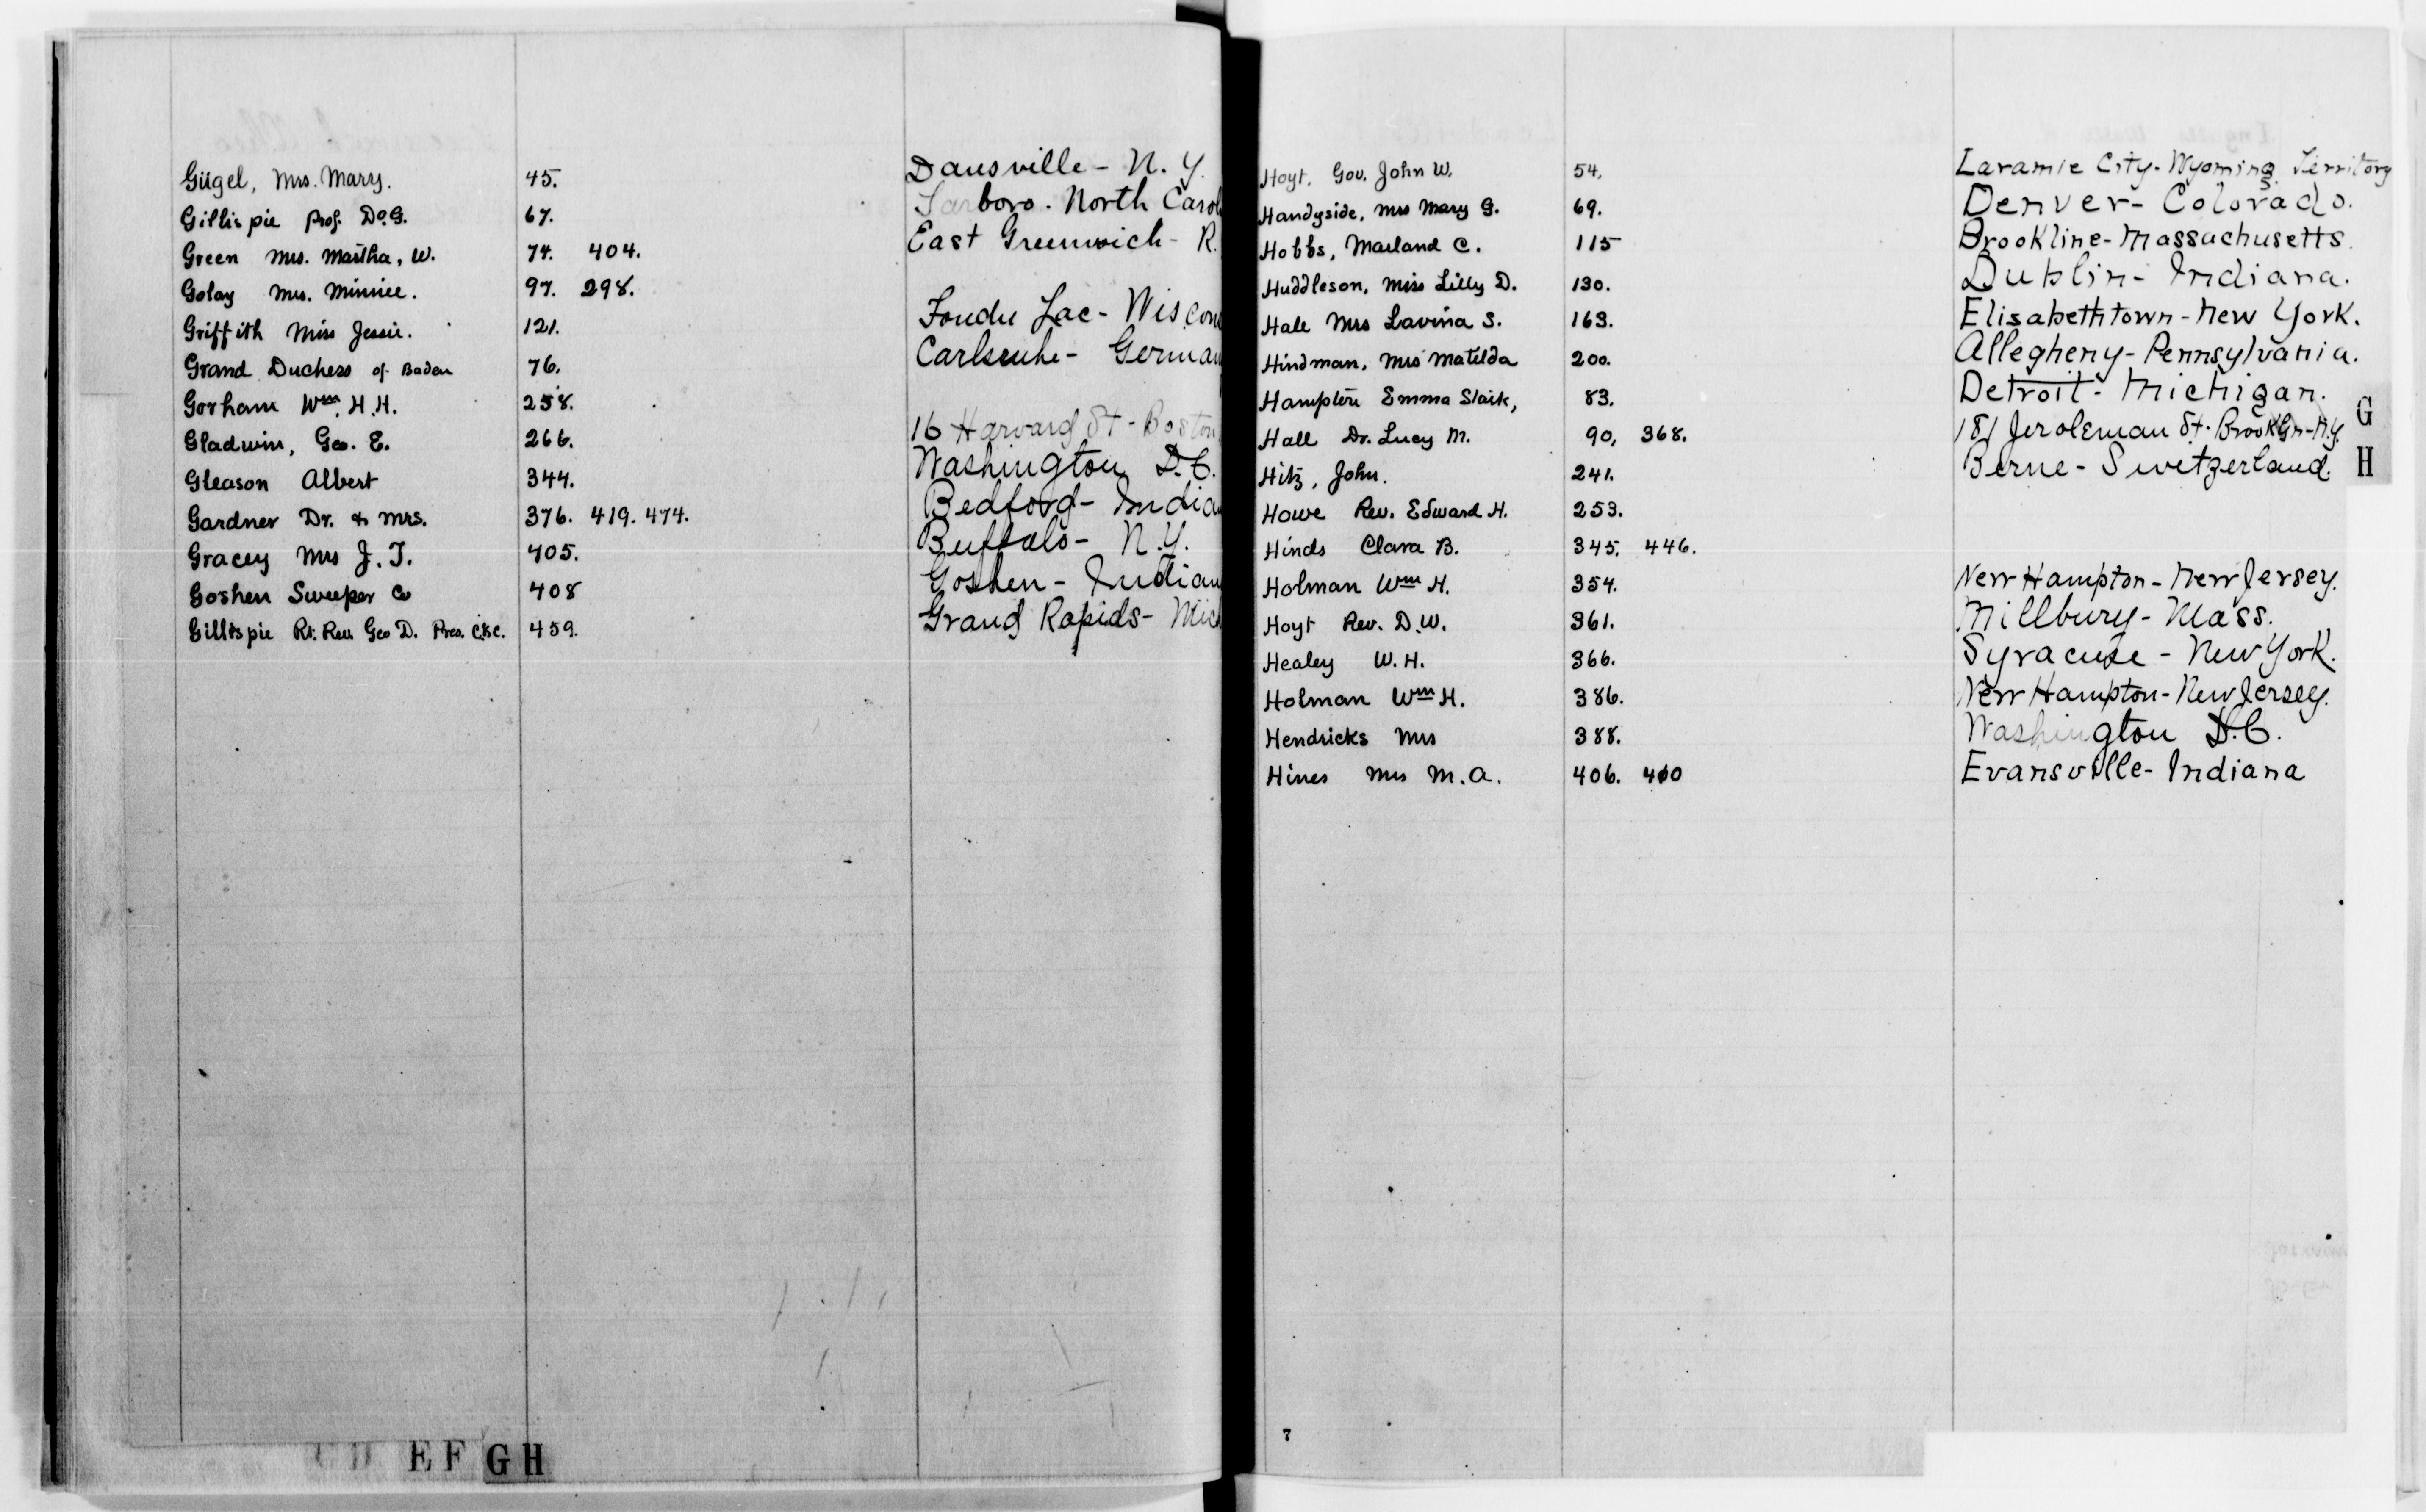 Gügel, Mrs. Mary. 45. Dansville - N. Y.
Gillispie Prof. D.G. 67. Tarboro. North Carol
Green Mrs. Martha, W. 74. 404. East Greenwich - R.
Golay Mrs. Minnie. 97. 298.
Griffith Miss Jessie. 121. Fondu Lac - Wiscon
Grand Duchess of Baden 76. Carlsruhe - German
Gorham Wm. H.H. 258.
Gladwin, Geo. E. 266. 16 Harvard St - Boston
Gleason Albert 344. Washington D.C.
Gardner Dr. & Mrs. 376. 419. 474. Bedford - India
Gracey Mrs J. T. 405. Buffalo - N.Y.
Goshen Sweeper Co 408 Goshen - Indian
Gillispie Rt. Rev. Geo D. Pres. C.&C. 459. Grand Rapids - Mich
C D E F G H
Hoyt, Gov. John W. 54. Laramie City - Wyoming Territory
Handyside, Mrs Mary G. 69. Denver - Colorado.
Hobbs, Marland C. 115 Brookline - Massachusetts
Huddleson, Miss Lilly D. 130. Dublin - Indiana.
Hale Mrs Lavina S. 163. Elisabethtown - New York.
Hindman, Mrs Matilda 200. Allegheny - Pennsylvania.
Hampton Emma Stark, 83. Detroit - Michigan.
Hall Dr. Lucy M. 90, 368. 181 Jeroleman St. Brooklyn - N.Y.
Hitz, John. 241. Berne - Switzerland.
Howe Rev. Edward H. 253.
Hinds Clara B. 345. 446.
Holman Wm H. 354. New Hampton - New Jersey.
Hoyt Rev. D.W. 361. Millbury - Mass.
Healey W. H. 366. Syracuse - New York.
Holman Wm H. 386. New Hampton - New Jersey.
Hendricks Mrs 388. Washington D.C.
Hines Mrs M.A. 406. 410 Evansville - Indiana
G
H
7